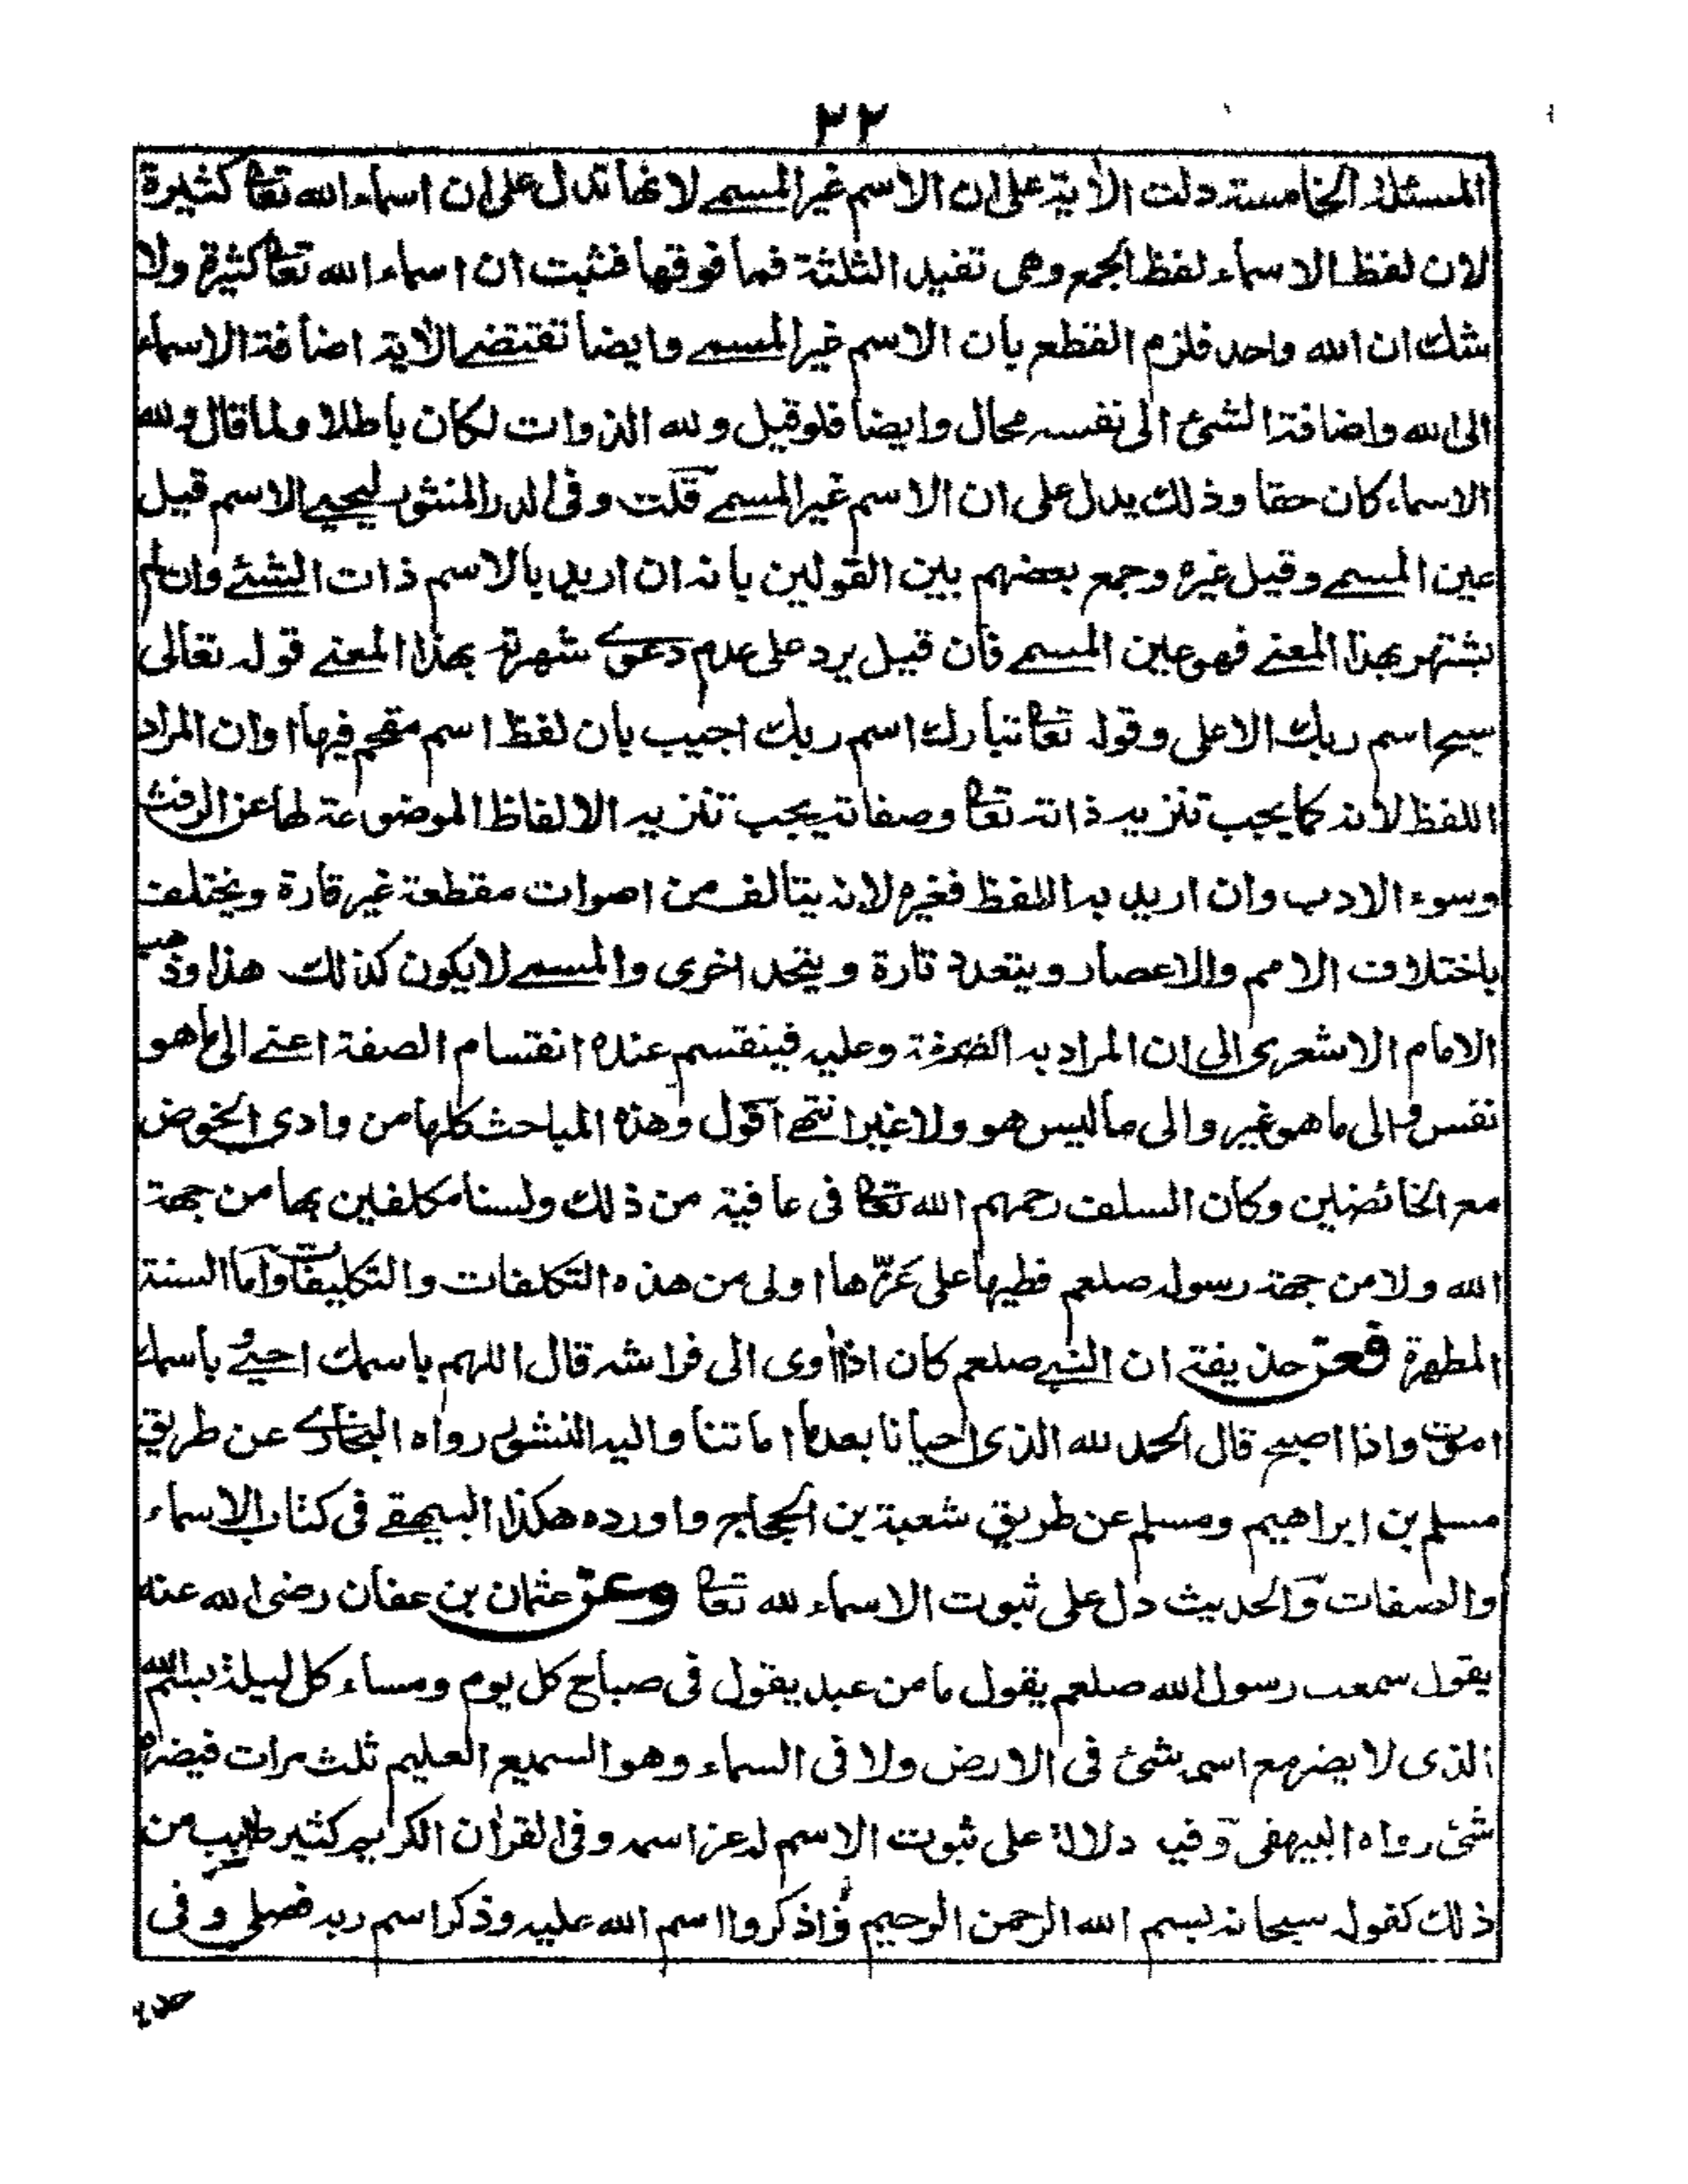 ٢٢
المسئلة الخامسة دلت الأية على ان الاسم غير المسمى لانها تدل على ان اسماء الله تعا كثيرة
لان لفظ الاسماء لفظ الجمع وهى تفيد الثلثة فما فوقها فثبت ان اسماء الله تعا كثيرة ولا
شك ان الله واحد فلزم القطع بان الاسم غير المسمى وايضا تقتضى الأية اضافة الاسماء
الى الله واضافة الشئ الى نفسه محال وايضا فلو قيل ولله الذوات لكان باطلا ولما قال ولله
الاسماء كان حقا وذلك يدل على ان الاسم غير المسمى قلت وفى الدر المنثور ليحيى الاسم قيل
عين المسمى وقيل غيره وجمع بعضهم بين القولين بانه ان اريد بالاسم ذات الشئ وان لم
يشتهر بهذا المعنى فهو عين المسمى فان قيل يرد على عدم دعوى شهرته بهذا المعنى قوله تعالى
سبح اسم ربك الاعلى وقوله تعا تبارك اسم ربك اجيب بان لفظ اسم مقحم فيها او ان المراد
اللفظ لانه كما يجب تنزيه ذاته تعا وصفاته يجب تنزيه الالفاظ الموضوعة لها عن الرفث
وسوء الادب وان اريد به اللفظ فغيره لانه يتالف من اصوات مقطعة غير قارة ويختلف
باختلاف الامم والاعصار ويتعدد تارة ويتحد اخرى والمسمى لا يكون كذلك هذا وذهب
الامام الاشعرى الى ان المراد به الصفة وعليه فينقسم عنده انقسام الصفة اعنى الى ما هو
نفس والى ما هو غير والى ما ليس هو ولا غير انتهى اقول وهذه المباحث كلها من وادى الخوض
مع الخائضين وكان السلف رحمهم الله تعا فى عافية من ذلك ولسنا مكلفين بها من جهة
الله ولا من جهة رسوله صلعم فطيها على غرّها اولى من هذه التكلفات والتكليفات واما السنة
المطهرة فعن حذيفة ان النبى صلعم كان اذا أوى الى فراشه قال اللهم باسمك احيى باسمك
اموت واذا اصبح قال الحمد لله الذى احيانا بعد ما اماتنا واليه النشور رواه البخارى عن طريق
مسلم بن ابراهيم ومسلم عن طريق شعبة بن الحجاج واورده هكذا البيهقى فى كتاب الاسماء
والصفات والحديث دل على ثبوت الاسماء لله تعا وعن عثمان بن عفان رضى الله عنه
يقول سمعت رسول الله صلعم يقول ما من عبد يقول فى صباح كل يوم ومساء كل ليلة بسم الله
الذى لا يضر مع اسمه شئ فى الارض ولا فى السماء وهو السميع العليم ثلث مرات فيضره
شئ رواه البيهقى وفيه دلالة على ثبوت الاسم له عز اسمه وفى القرأن الكريم كثير طيب من
ذلك كقوله سبحانه بسم الله الرحمن الرحيم واذكروا اسم الله عليه وذكر اسم ربه فصلى وفى